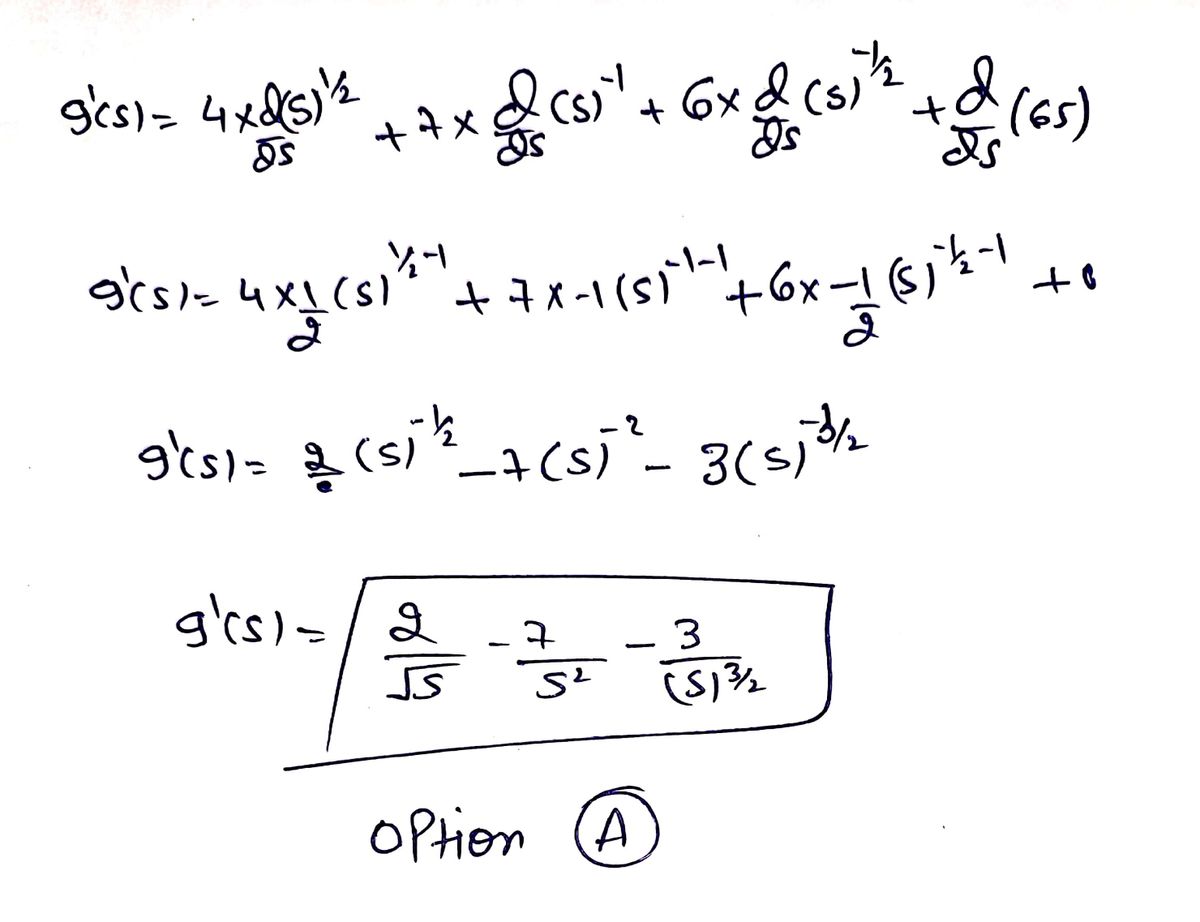 g'(s) = 4 × d/ds (s)^1/2 + 7 × d/ds (s)^-1 + 6 × d/ds (s)^-1/2 + d/ds (65)
g'(s) = 4 × 1/2 (s)^1/2-1 + 7 × -1 (s)^-1-1 + 6 × -1/2 (s)^-1/2-1 + 0
g'(s) = 2 (s)^-1/2 - 7 (s)^-2 - 3 (s)^-3/2
g'(s) = 2/√s - 7/s² - 3/(s)^3/2
Option A